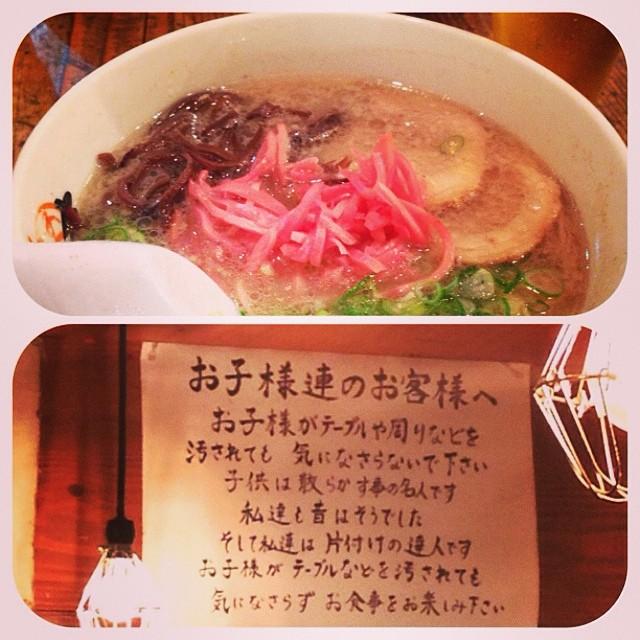 お子様連のお客様へ
お子様がテーブルや周りなどを
汚されても 気になさらないで下さい
子供は散らかす事の名人です
私達も昔はそうでした
そして私達は 片付けの達人です
お子様が テーブルなどを汚されても
気になさらず お食事をお楽しみ下さい